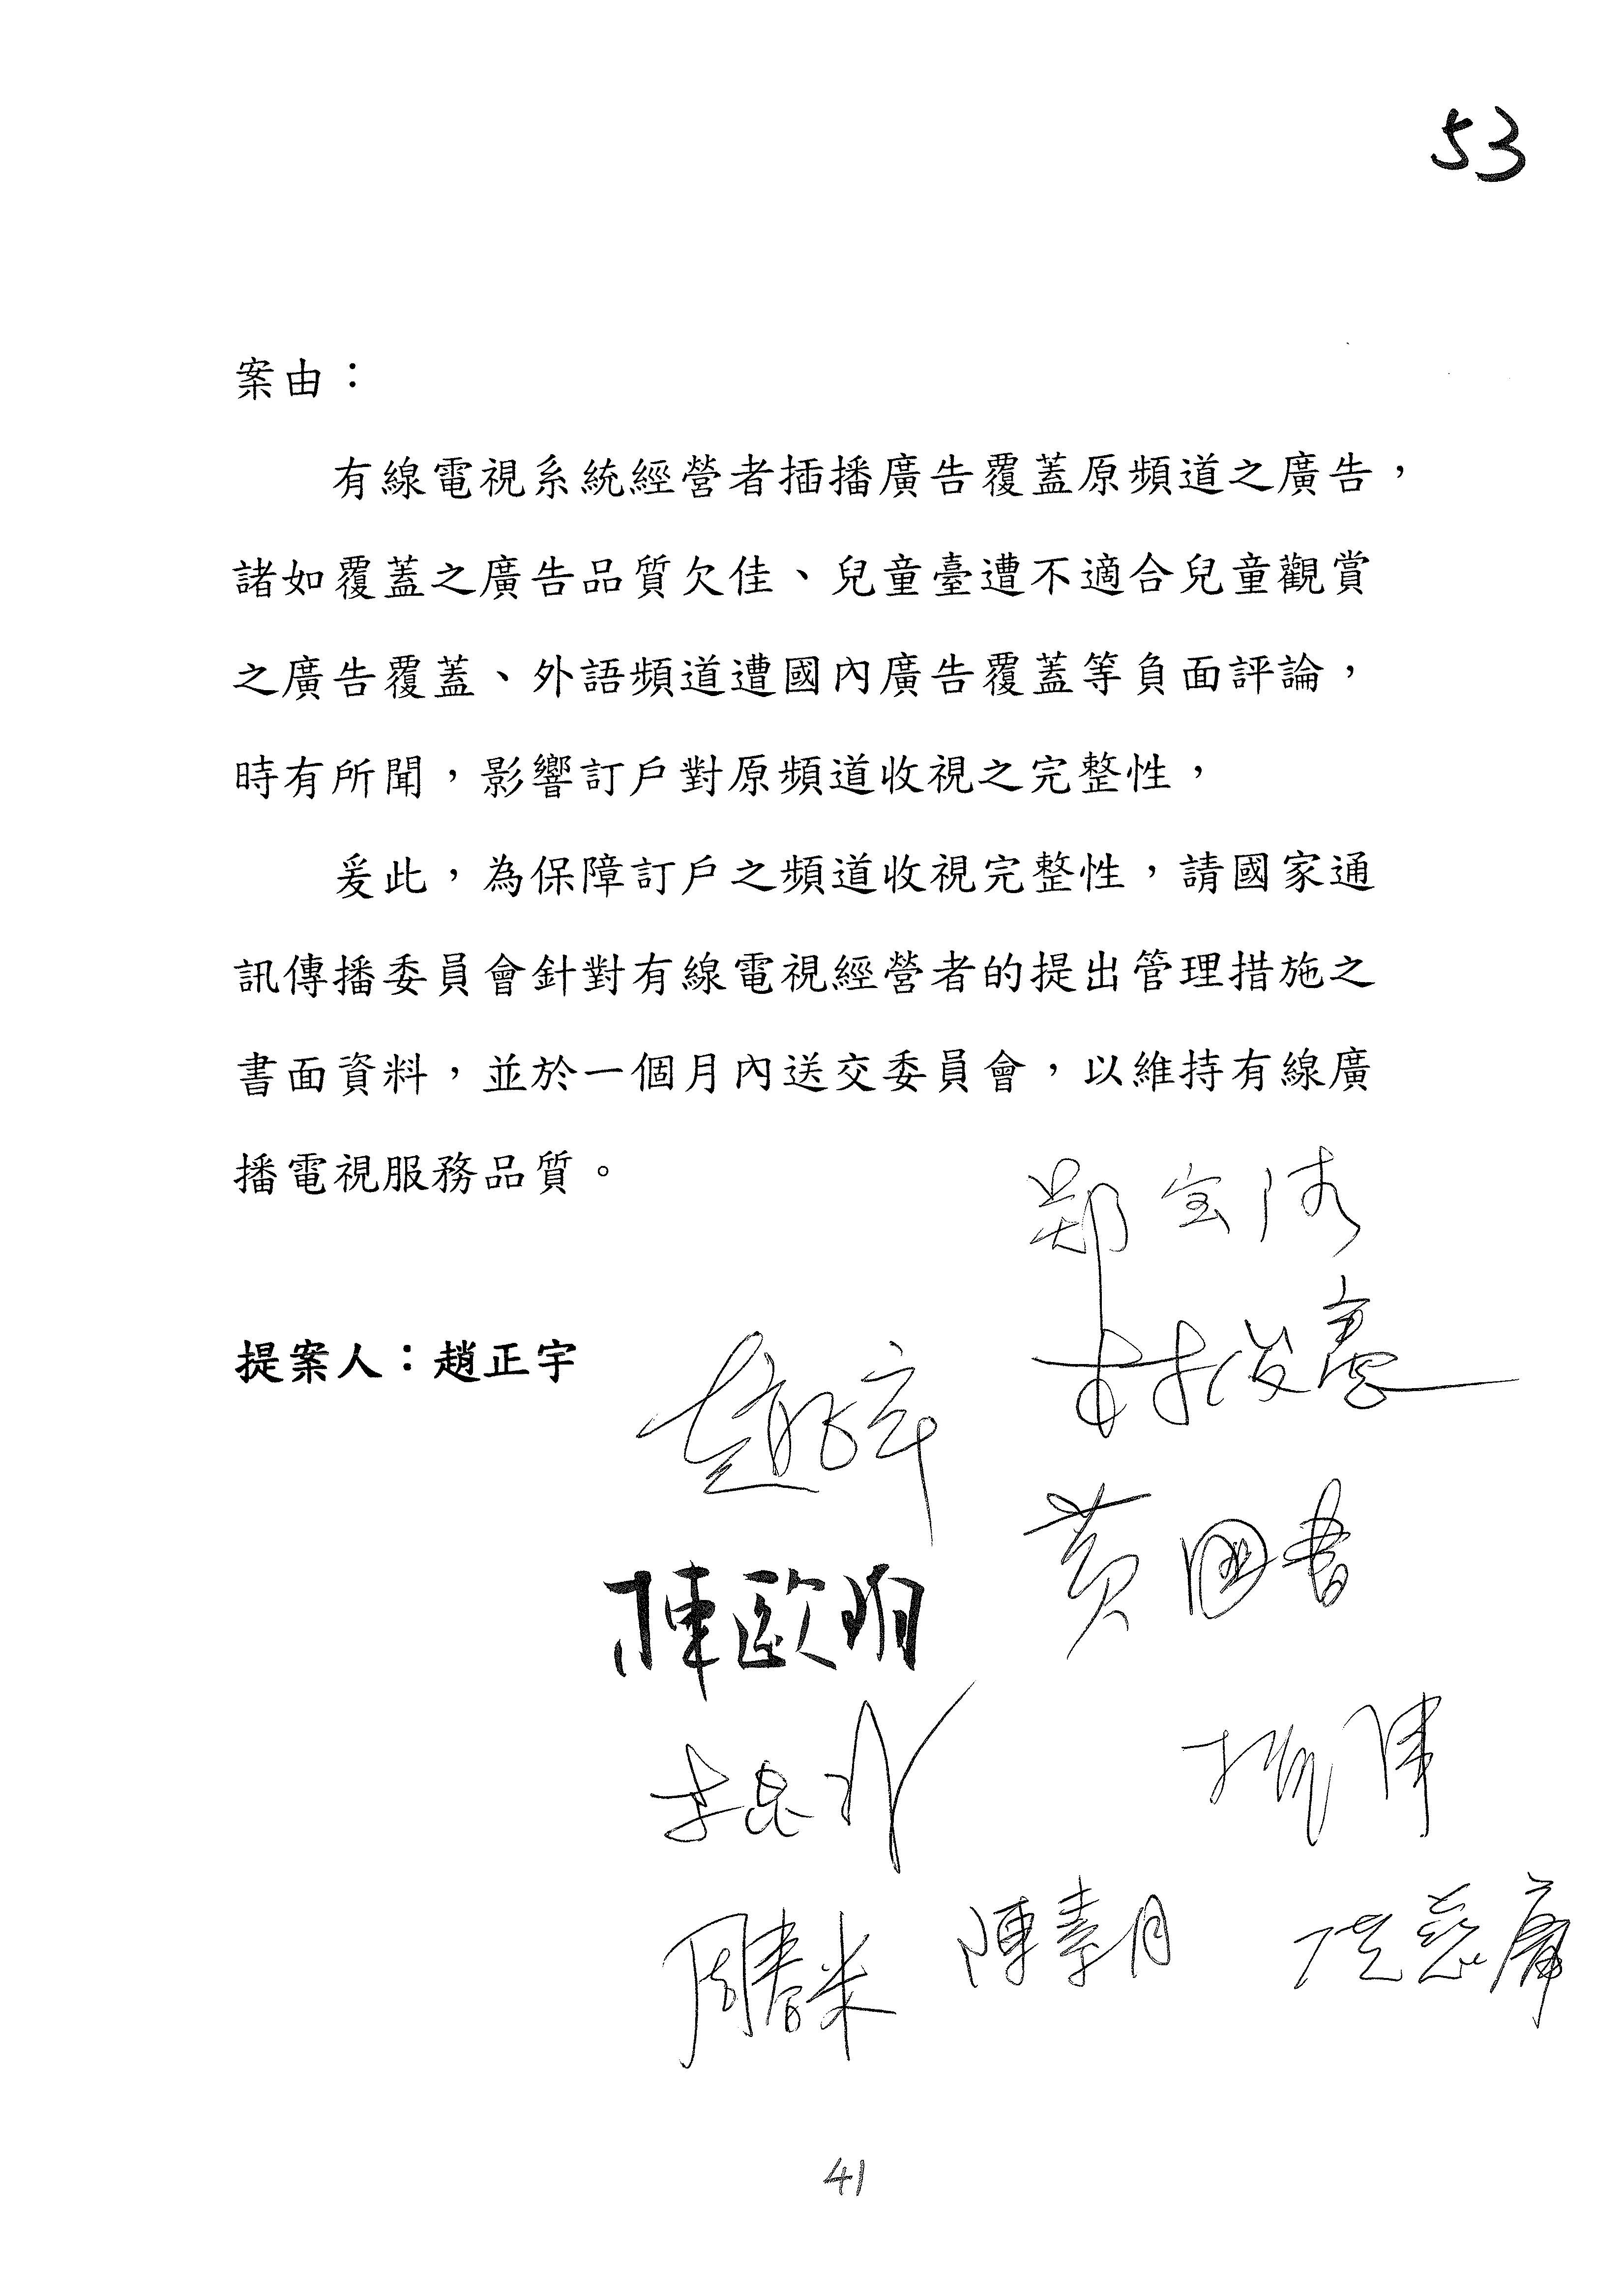 53
案由：
有線電視系統經營者插播廣告覆蓋原頻道之廣告，
諸如覆蓋之廣告品質欠佳、兒童臺遭不適合兒童觀賞
之廣告覆蓋、外語頻道遭國內廣告覆蓋等負面評論，
時有所聞，影響訂戶對原頻道收視之完整性，
爰此，為保障訂戶之頻道收視完整性，請國家通
訊傳播委員會針對有線電視經營者的提出管理措施之
書面資料，並於一個月內送交委員會，以維持有線廣
播電視服務品質。
鄭宝清
提案人：趙正宇
趙正宇
林俊憲
黃國書
陳歐珀
李昆澤
周春米
陳素月
洪慈庸
41